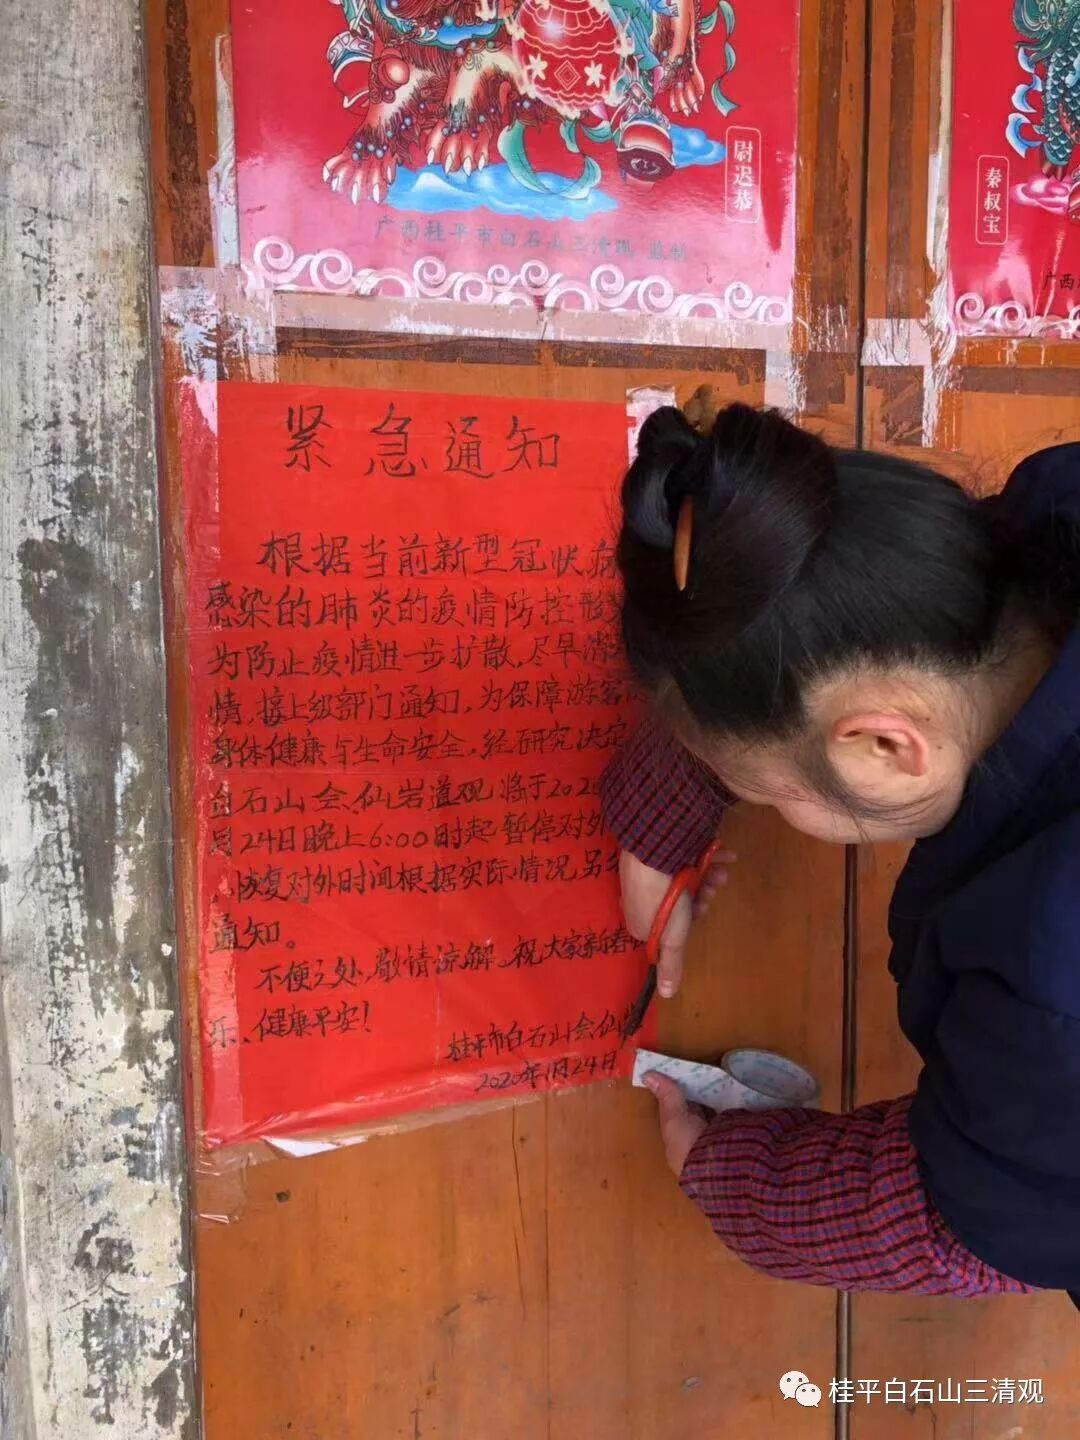 尉迟恭
广西桂平市白石山三清观 监制
秦叔宝
广西
紧急通知
根据当前新型冠状病
感染的肺炎的疫情防控形
为防止疫情进一步扩散,尽早消
情,接上级部门通知,为保障游客
身体健康与生命安全,经研究决定
白石山会仙岩道观将于2020
月24日晚上6:00时起暂停对外
,恢复对外时间根据实际情况另
通知。
不便之处,敬情谅解。祝大家新春
乐、健康平安!
桂平市白石山会仙
2020年1月24日
桂平白石山三清观